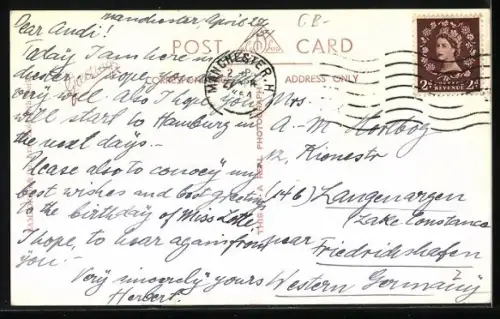 Manchester April 24
GB-
Dear Andi!
POST CARD
CORRESPONDENCE
ADDRESS ONLY
Today I am here in Man-
chester. I hope, you are
very well. Also I hope you
will start to Hamburg in
the next days...
Please also to convey my
best wishes and best greetings
to the birthday of Miss Lotte.
I hope, to hear again from
you.-
Very sincerely yours
Herbert.
MANCHESTER
THIS IS A REAL PHOTOGRAPH
POSTAGE REVENUE
2D 2D
Mrs.
A.-M. Hortbog
12, Kionestr
(146) Langenargen
/Lake Constance
near Friedrichshafen
Western Germany